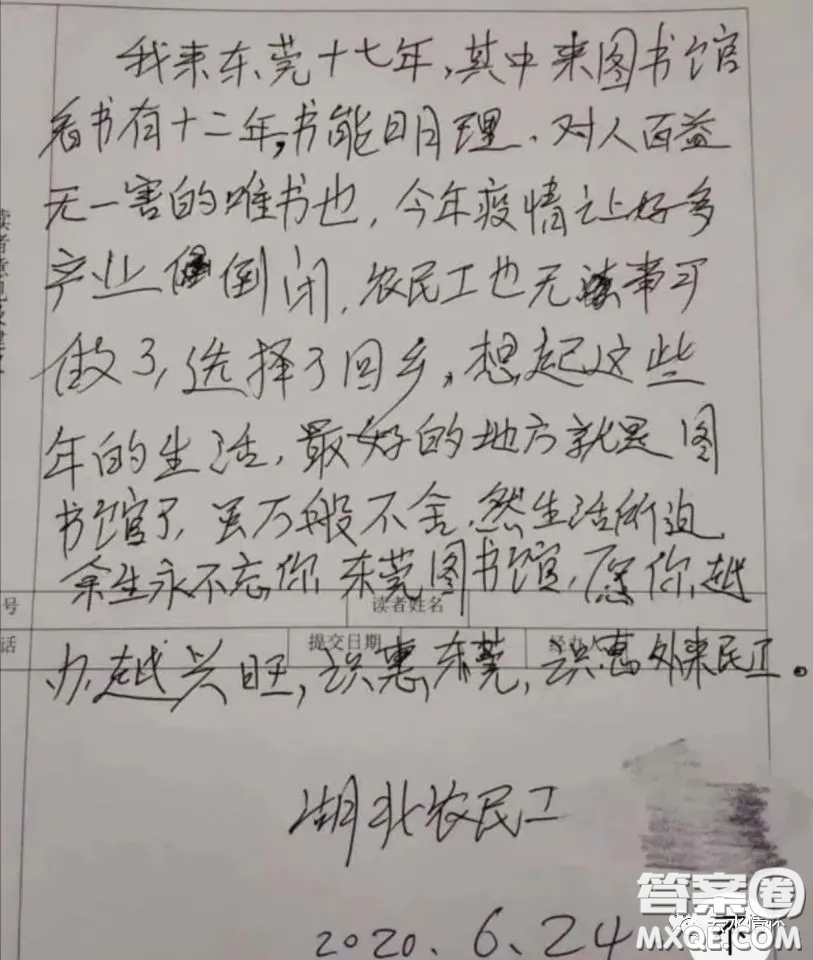 我来东莞十七年,其中来图书馆
看书有十二年,书能明理、对人百益
无一害的唯书也,今年疫情让好多
产业倒闭,农民工也无事可
做了,选择了回乡。想起这些
年的生活,最好的地方就是图
书馆了,虽万般不舍,然生活所迫,
余生永不忘你,东莞图书馆,愿你越
办越兴旺,识惠东莞,识惠外来民工。
读者意见及建议
号
读者姓名
话
提交日期
经办人
湖北农民工
2020.6.24
答案圈
MXQE.COM